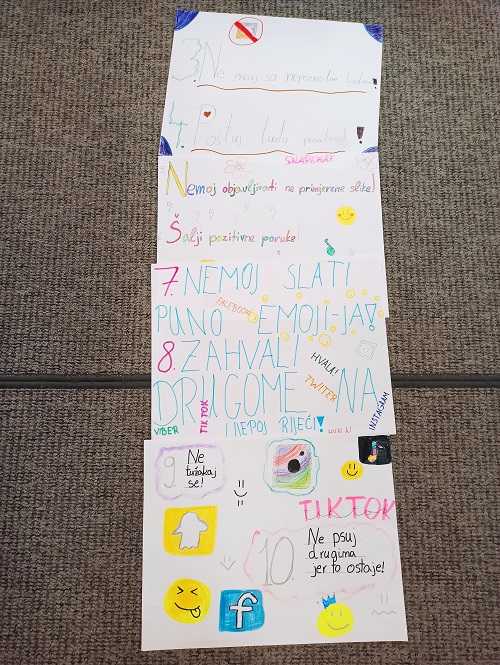 3. Ne sa nepoznatim ljudima!
4. Poštuj tuđu privatnost!
SNAPCHAT
Nemoj objavljivati ne primjerene slike!
Šalji pozitivne poruke!
7. NEMOJ SLATI
FACEBOOK
PUNO EMOJI-JA!
8. ZAHVALI
HVALA!
TWITER
DRUGOME NA
INSTAGRAM
VIBER
TIKTOK
LIJEPOJ RIJEČI!
HVALA!
9 Ne
tužakaj
se!
TIKTOK
10. Ne psuj
drugima
jer to ostaje!
f